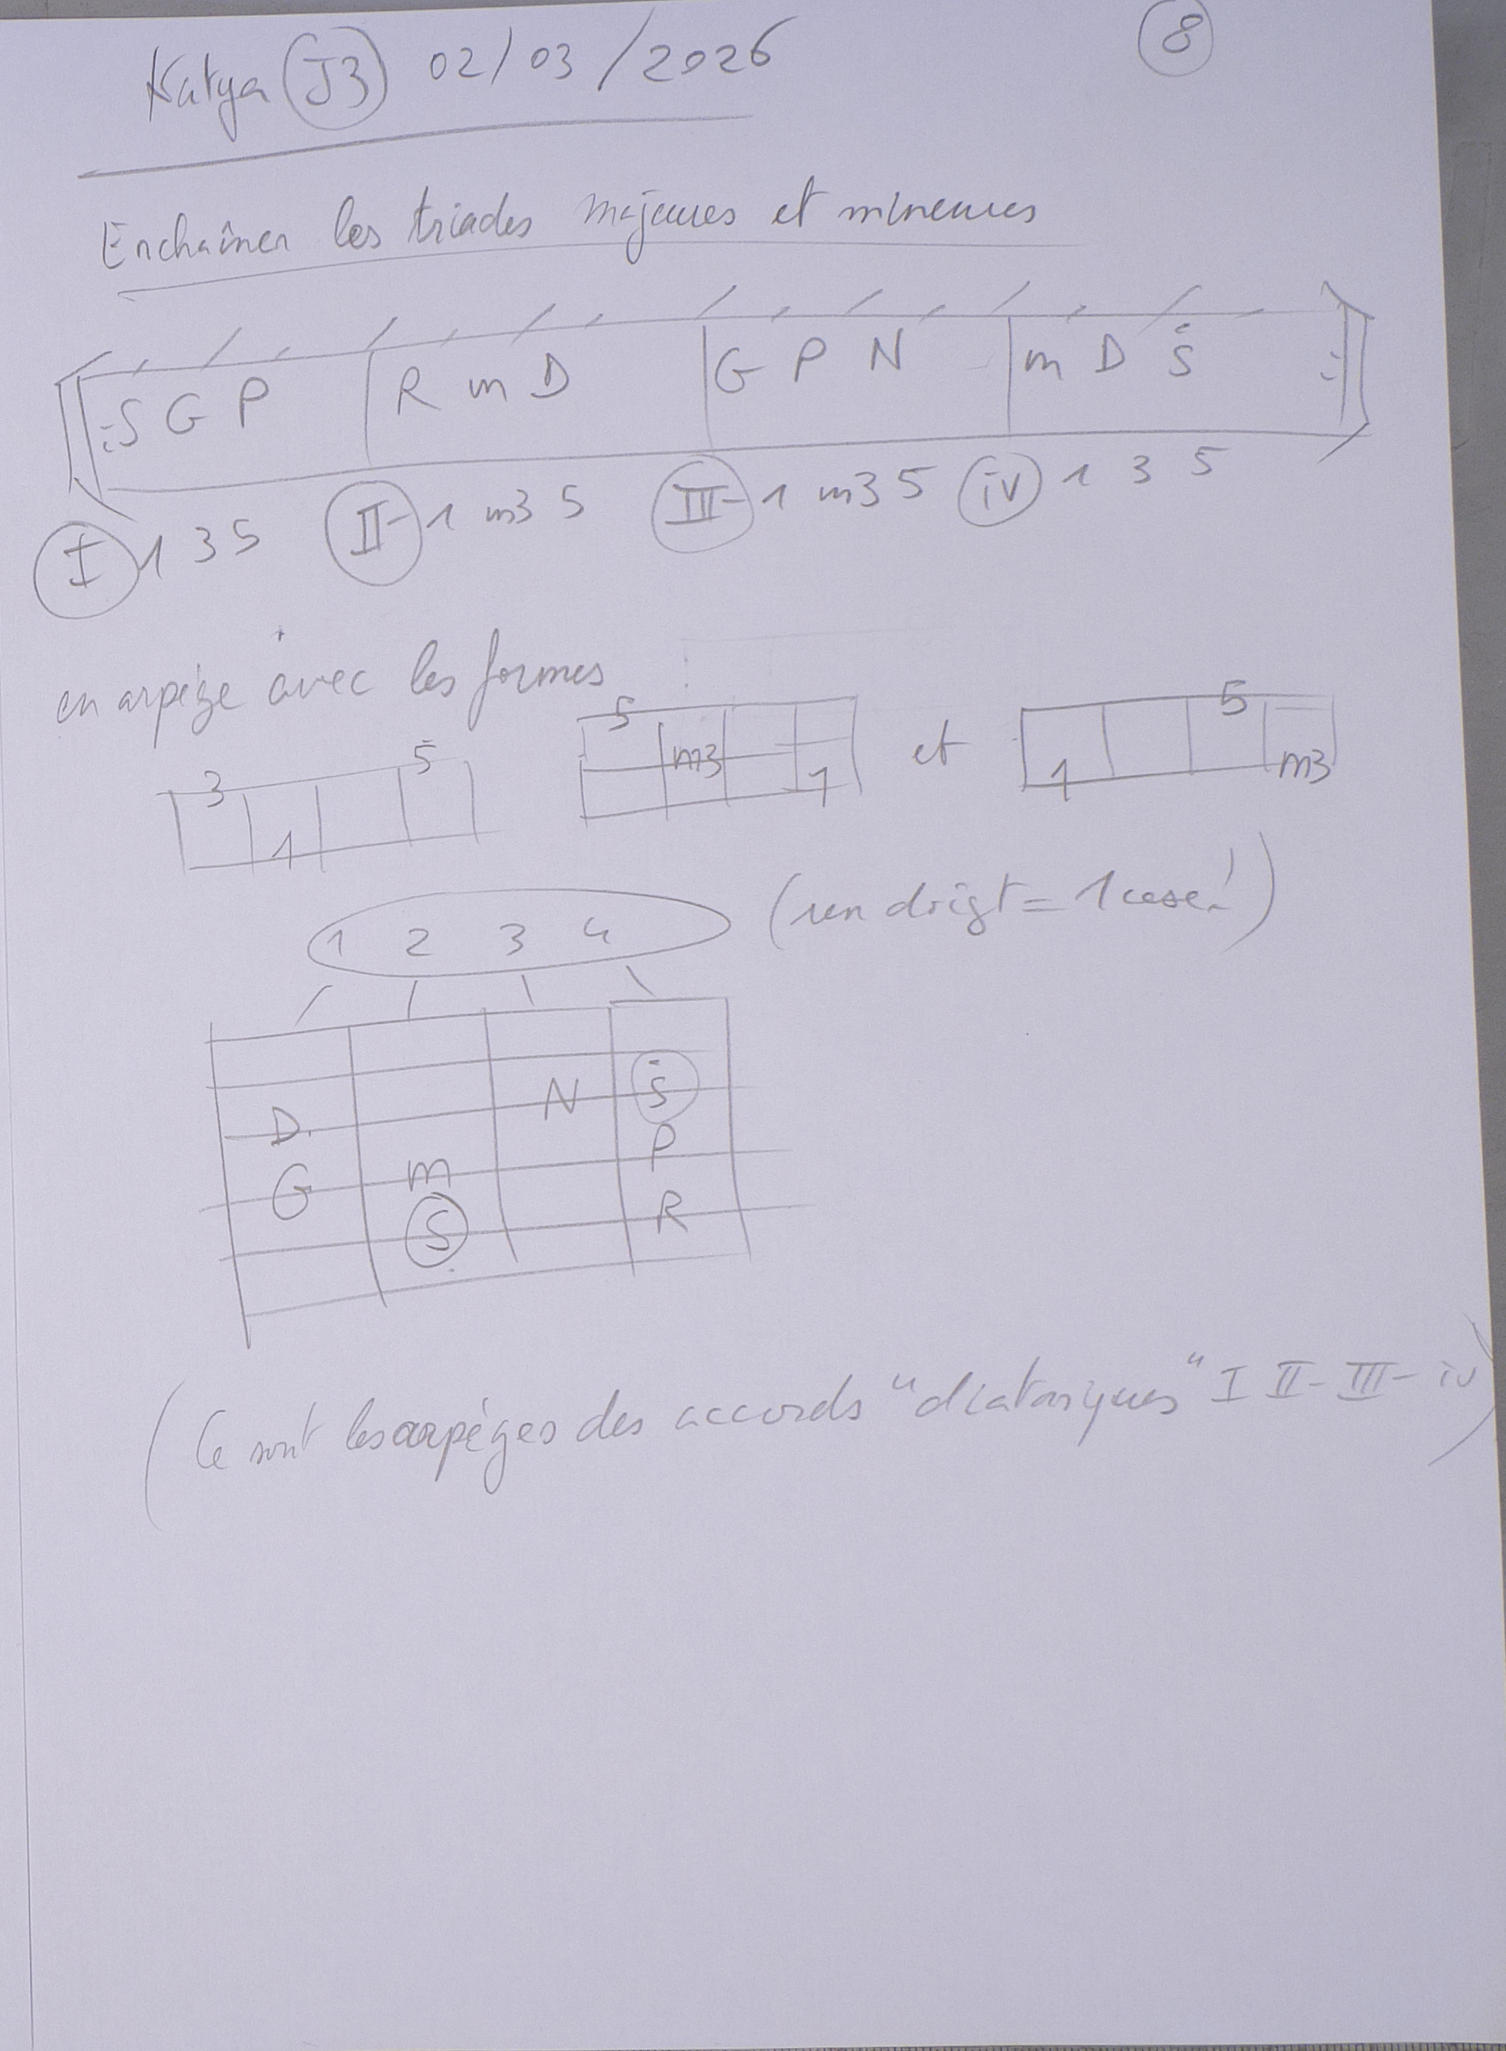 Katya J3 02/03/2026
8
Enchaîner les triades majeures et mineures
:S G P | R m D | G P N | m D Ṡ :
I 1 3 5 II- 1 m3 5 III- 1 m3 5 iv 1 3 5
en arpège avec les formes :
3 1 5
5 m3 1
et
1 5 m3
1 2 3 4 (un doigt = 1 case !)
N Ṡ
D P
G m R
S
(Ce sont les arpèges des accords "diatoniques" I II- III- iv)